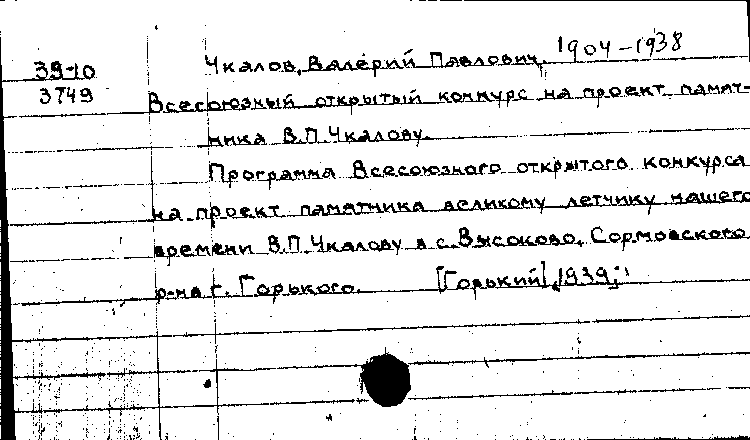 39-10 Чкалов, Валерий Павлович, 1904-1938
3749 Всесоюзный открытый конкурс на проект памят-
ника В.П.Чкалову.
Программа Всесоюзного открытого конкурса
на проект памятника великому летчику нашего
времени В.П.Чкалову в с.Высоково, Сормовского
р-на г. Горького. [Горький], 1939;